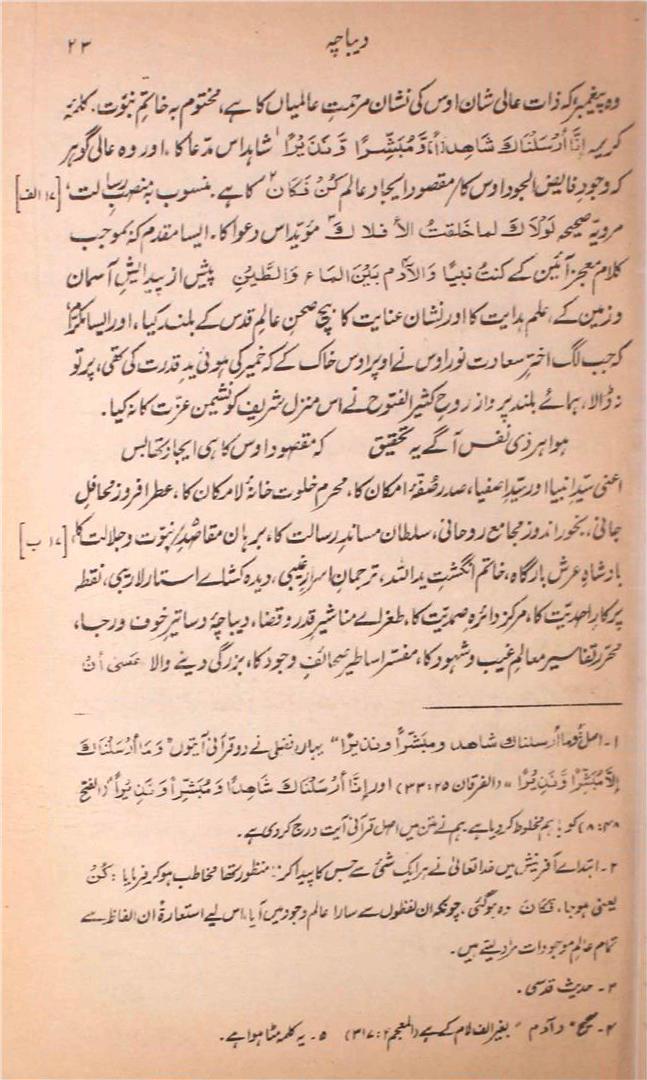 دیباچہ ۲۳
وہ پیغمبر کہ ذات عالی شان اوس کی نشان مرحمت عالمیاں کا ہے، مختوم بہ خاتم نبوت۔ کلمۂ
کریمہ إِنَّا أَرْسَلْنَاكَ شَاهِدًا وَّمُبَشِّرًا وَّنَذِيْرًا ۱ شاہد اس مدعا کا، اور وہ عالی گوہر
کہ وجودِ فایض الجود اوس کا/ مقصود ایجاد عالم كُنْ فَكَانَ ۲ کا ہے۔ منسوب بہ منصبِ رسالت، [۱۷ الف]
مرویۂ صحیحہ لَوْلَاكَ لما خلقتُ الأفلاكَ ۳ مویّد اس دعوا کا۔ ایسا مقدم کہ بموجب
کلام معجز آئین کے كنتُ نبيًّا وَالآدم ۴ بَيْنَ الماءِ وَالطِّيْنِ پیش از پیدایشِ آسمان
و زمین کے، علم ہدایت کا اور نشان عنایت کا بیچ صحنِ عالمِ قدس کے بلند کیا، اور ایسا مکرّم ۵
کہ جب لگ اخترِ سعادت نور اوس نے اوپر اوس خاک کے کہ خمیر کی ہوئی یدِ قدرت کی تھی، پرتو
نہ ڈالا، ہمائے بلند پرواز روح کثیر الفتوح نے اس منزل شریف کو نشیمن عزّت کا نہ کیا۔
ہوا ہر ذی نفس آگے یہ تحقیق کہ مقصود اوس کا ہی ایجاد تھا بس
اعنی سیّدِ انبیا اور سیّدِ اصفیا، صدر صُفّۂ امکان کا، محرمِ خلوت خانۂ لامکان کا، عطر افروز محافلِ
جانی، بخور اندوز مجامع روحانی، سلطان مساندِ رسالت کا، برہان مقاصد/ نبوّت و جلالت کا، [۱۷ ب]
بادشاہِ عرش بارگاہ، خاتم انگشتِ ید اللہ، ترجمانِ اسرارِ غیبی، دیدہ کشائے استار لاریبی، نقطہ
پرکارِ احدیّت کا، مرکز دائرۂ صمدیّت کا، طغرائے مناشیر قدر و قضا، دیباچۂ دساتیر خوف و رجا،
محررِ تفاسیر معالم غیب و شہود کا، مفسّر اساطیر صحائفِ وجود کا، بزرگی دینے والا عَسىٰ أَنْ
۱۔ اصل: "وما أرسلناك شاهد و مبشّراً و نذيرًا" یہاں نے دو قرآنی آیتوں "وَمَا أَرْسَلْنَاكَ
إِلَّا مُبَشِّرًا وَّنَذِيْرًا" (الفرقان ۲۵: ۳۳) اور إِنَّا أَرْسَلْنَاكَ شَاهِدًا وَّمُبَشِّرًا وَّنَذِيْرًا" (الفتح
۴۸: ۸) کو باہم مخلوط کر دیا ہے، ہم نے متن میں اصل قرآنی آیت درج کر دی ہے۔
۲۔ ابتدائے آفرینش میں خدا تعالیٰ نے ہر ایک شئی سے جس کا پیدا کرنا منظور تھا مخاطب ہو کر فرمایا: كُنْ
یعنی ہوجا، فَكَانَ وہ ہوگئی، چونکہ ان لفظوں سے سارا عالم وجود میں آیا، اس لیے استعارةً ان الفاظ سے
تمام عالمِ موجودات مراد لیتے ہیں۔
۳۔ حدیث قدسی۔
۴۔ صحیح "و آدم" بغیر الف لام کے ہے (المعجم ۲: ۳۱۷) ۵۔ یہ کلمہ مٹا ہوا ہے۔